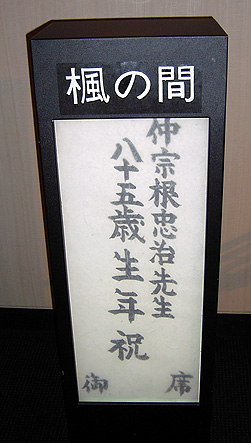 楓の間
仲宗根忠治先生
八十五歳生年祝
御席